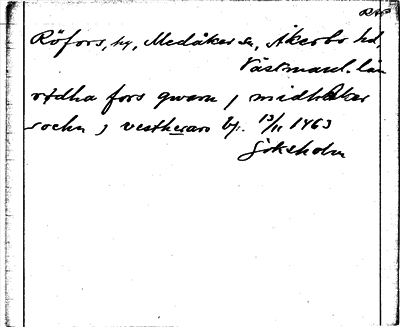 RAP
Röfors, by, Medåker sn, Åkerbo hd,
Västmanl. län
rødha fors qwarn j midhaker
sochn j vesthæraro bj. 13/11 1463
Göksholm